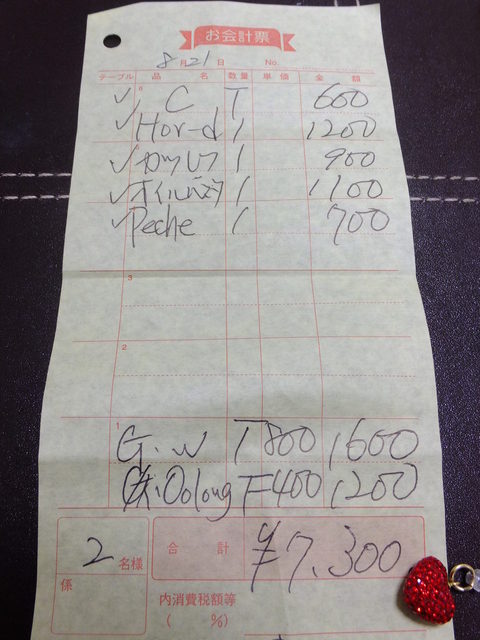 お会計票
8月21日 No.
テーブル 品名 数量 単価 金額
✓ 6 C T 600
✓ Hor-d 1 1200
✓ カツレツ 1 900
✓ 1 1100
✓ Peche 1 700
3
2
1
G.W T 800 1600
Oolong F 400 1200
2名様 合計 ¥7,300
係
内消費税額等
( %)